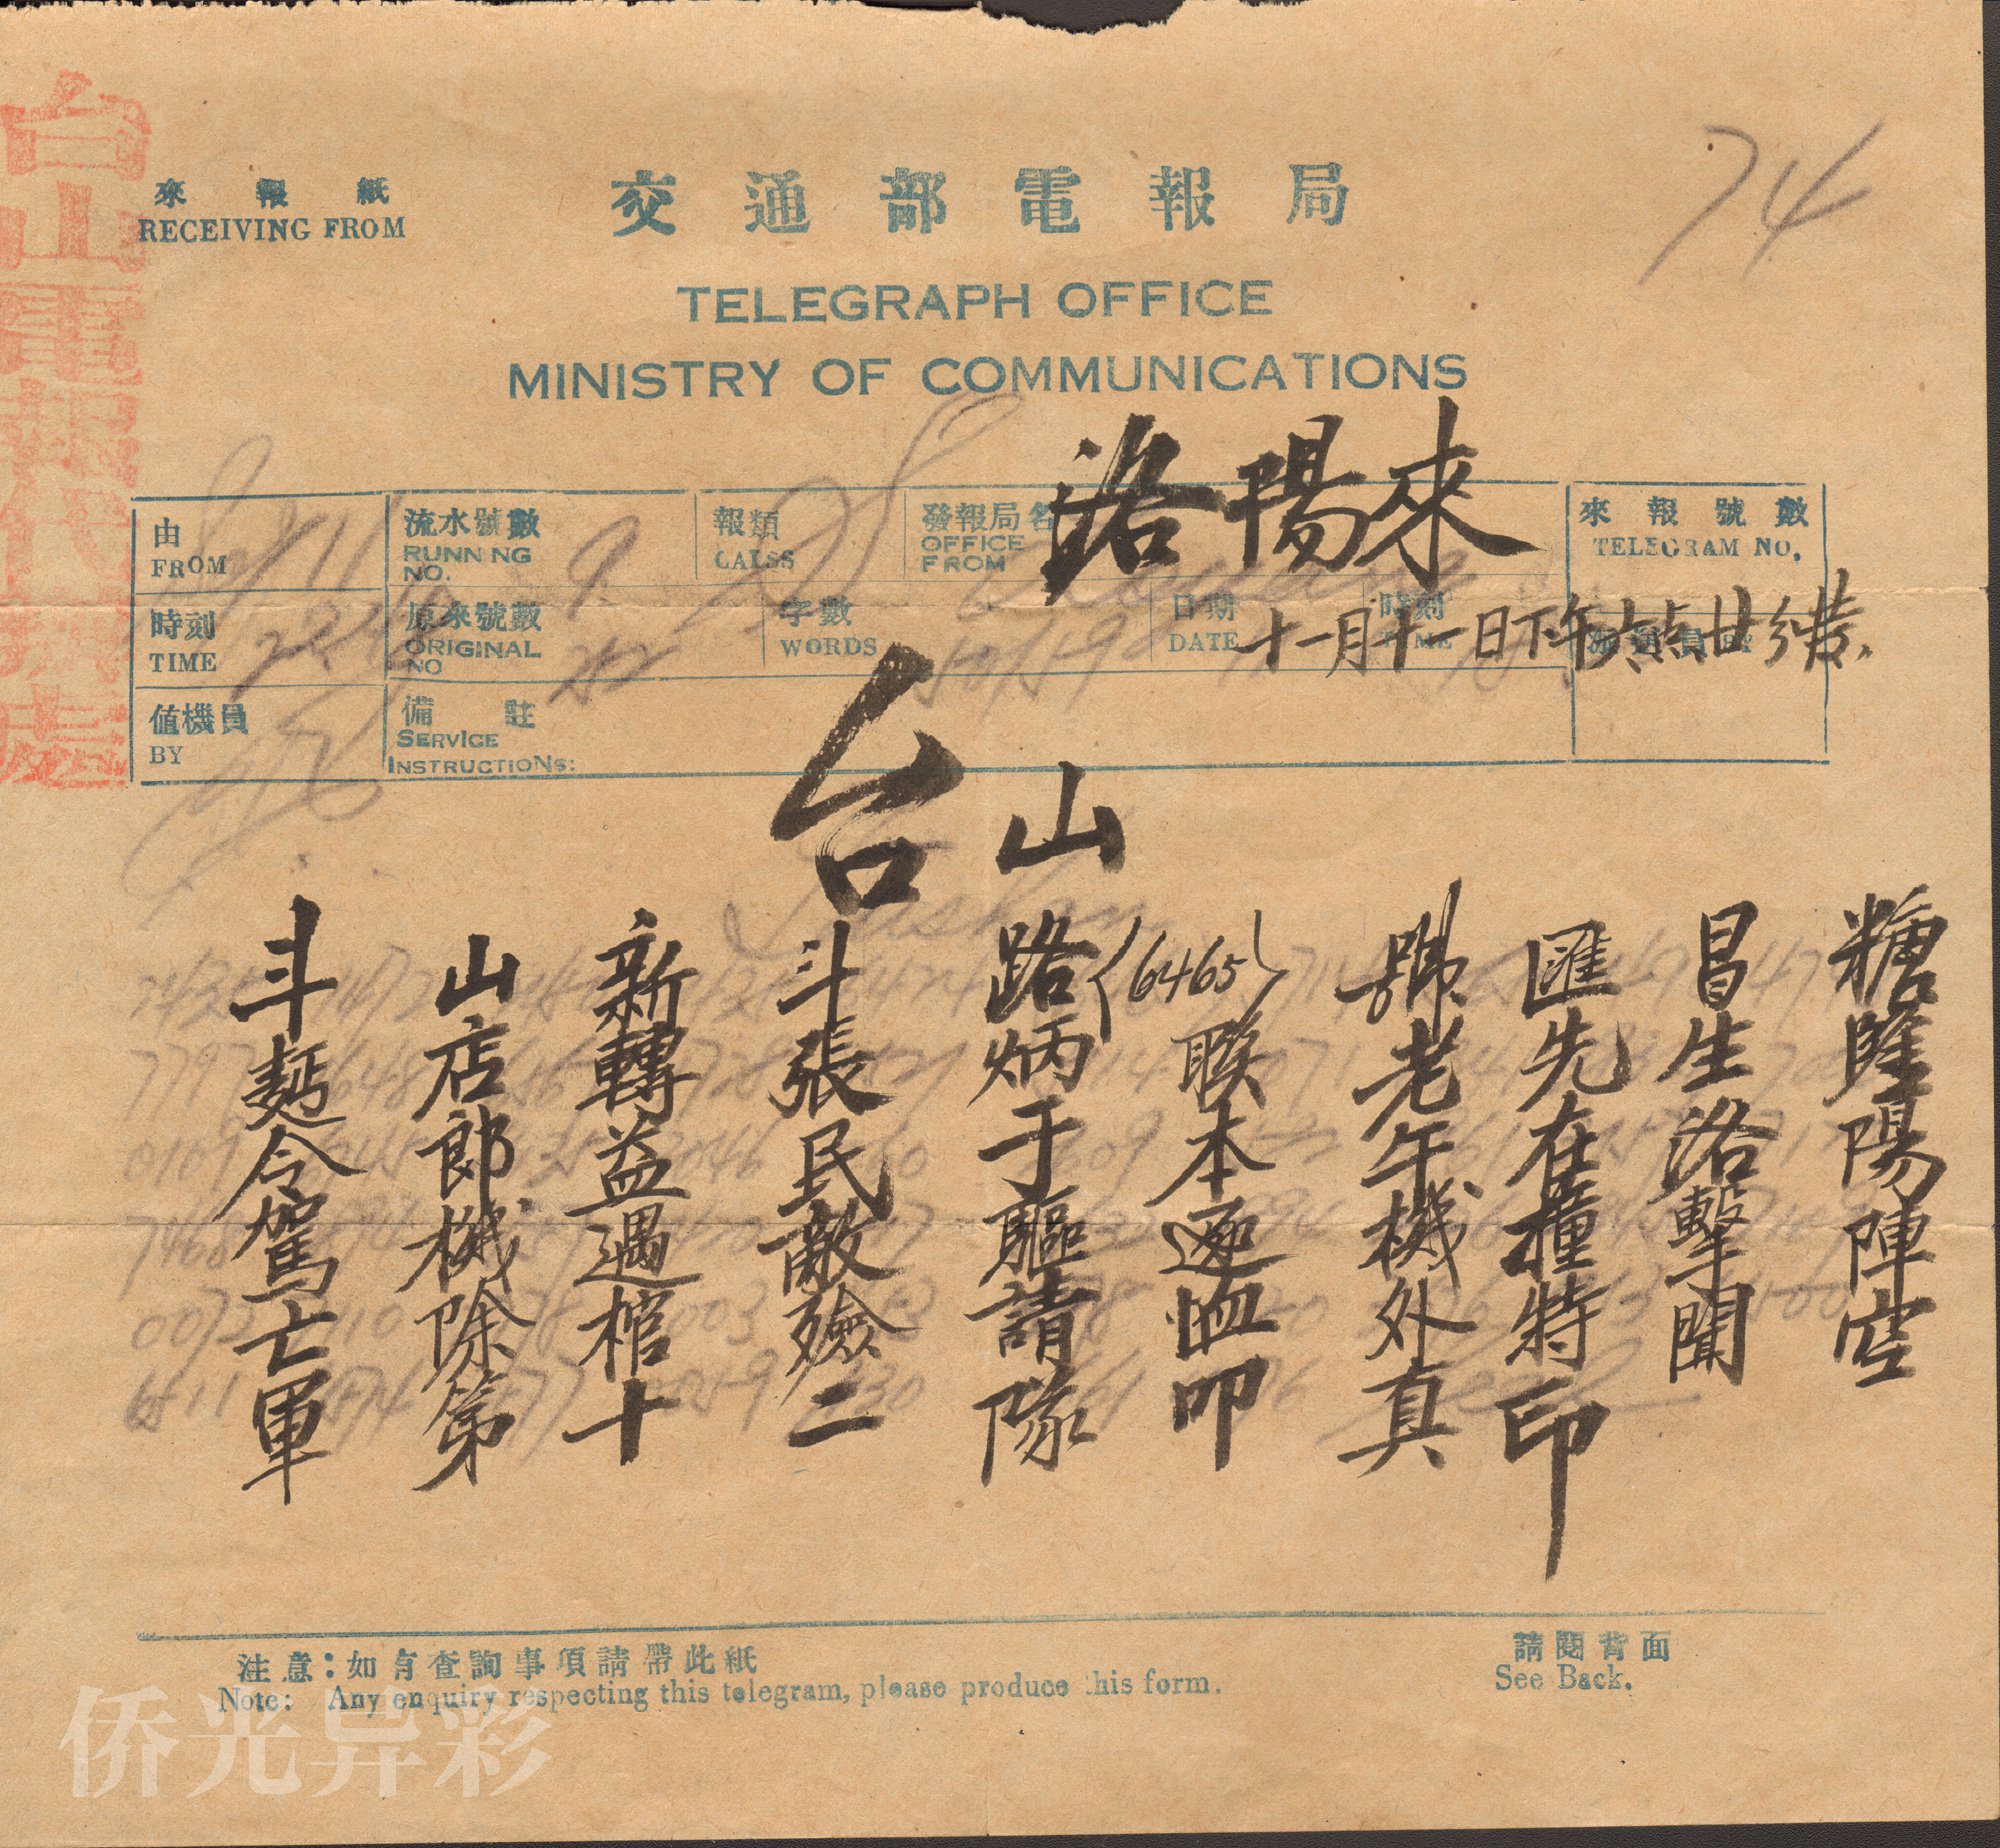 74
台山電報
來報紙
RECEIVING FROM
交通部電報局
TELEGRAPH OFFICE
MINISTRY OF COMMUNICATIONS
洛陽來
由
FROM
流水號數
RUNNING
NO.
9
報類
CALSS
發報局名
OFFICE
FROM
來報號數
TELEGRAM NO.
時刻
TIME
原來號數
ORIGINAL
NO
252
字數
WORDS
50/59
日期
DATE
時刻
十一月十一日下午六点廿分
值機員
BY
備註
SERVICE
INSTRUCTIONS:
台山
斗山新斗路(6465)號匯昌糖
麵店轉張炳联老先生隆
令郎益民于本午在洛陽
駕機遇敵驅逐機撞擊陣
亡除棺殮請恤外特聞空
軍第十二隊叩真印
注意：如有查詢事項請帶此紙
Note: Any enquiry respecting this telegram, please produce this form.
請閱背面
See Back.
侨光异彩